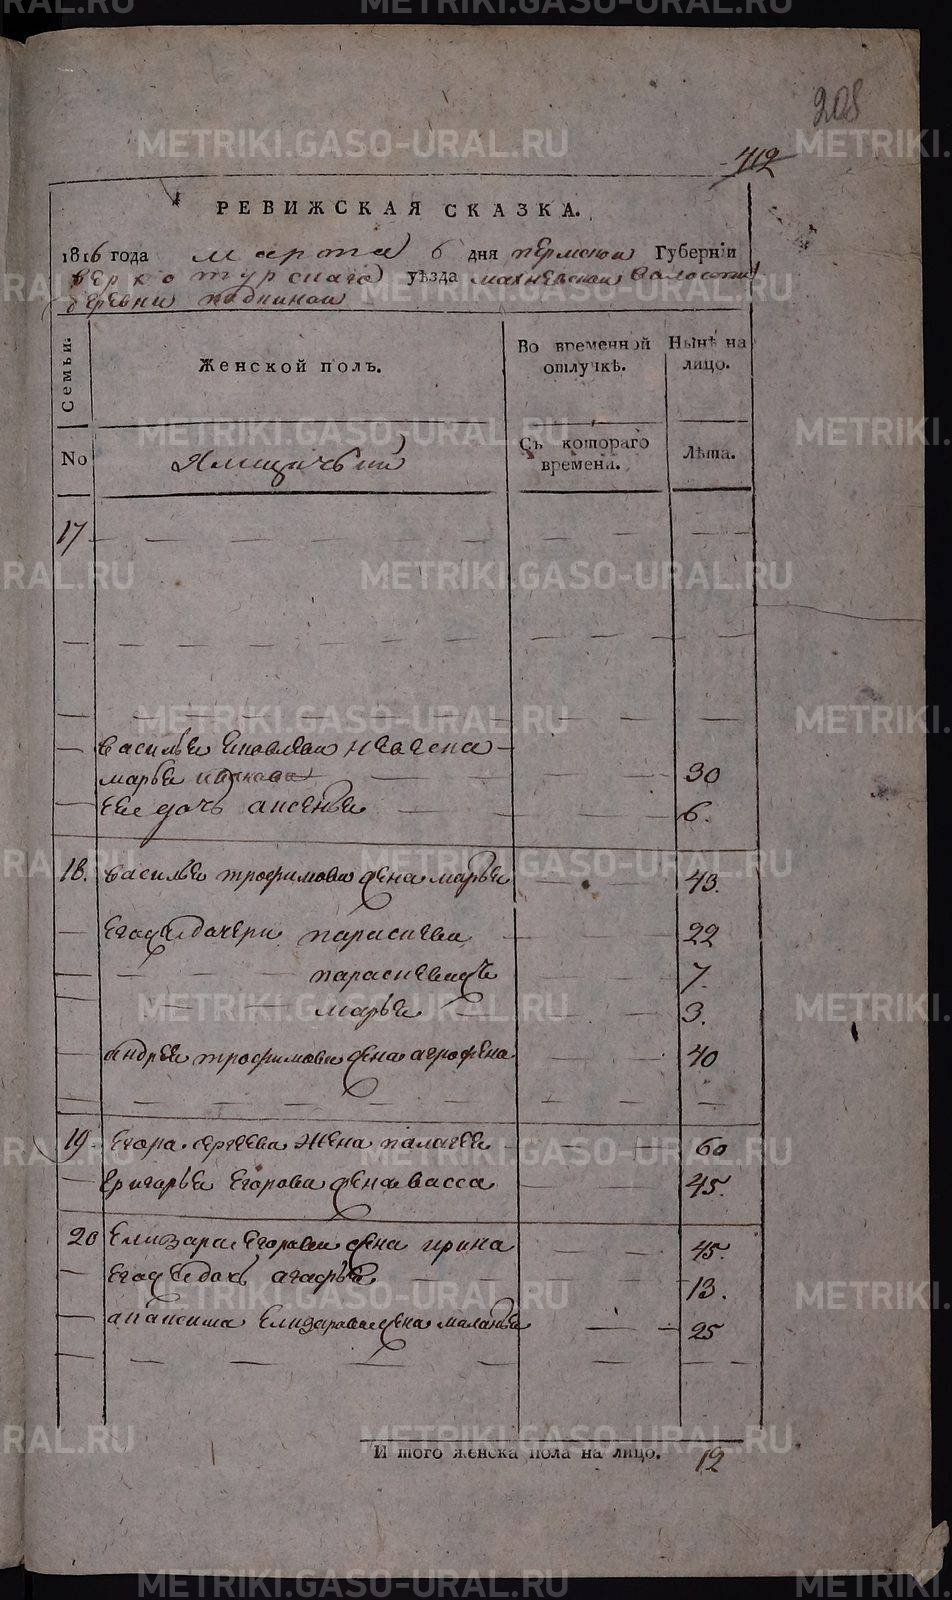 208
412
РЕВИЖСКАЯ СКАЗКА.
1816 года марта 6 дня пермской Губерніи
верхотурскаго уѣзда махневской валости
деревни
Семьи. Женской полъ. Во временной отлучкѣ. Нынѣ на лицо.
No Ямщичьей Съ котораго времени. Лѣта.
17
василья яковлева невеска
марья 30
ее дочь аксенья 6.
18. василья трофимова жена марья 43.
его же дочери парасковья 22
парасковья ж 7.
марья 3.
андрея трофимова жена агрофена 40
19 егора сергеева жена палагея 60
григорья егорова жена васса 45.
20 елизара егорова жена ирина 45.
его же дочь агафья 13.
анансима елизарова жена маланья 25
И того женска пола на лицо. 12
METRIKI.GASO-URAL.RU